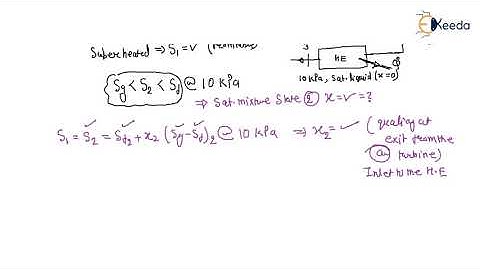 Ekeeda
Superheated ⇒ S₁ = ✓
3
HE
10 kPa, Sat. liquid (x=0)
Sg < S₂ < Sf @ 10 kPa
⇒ Sat. mixture State ② x = ✓ = ?
S₁ = S₂ = Sf₂ + x₂ (Sg - Sf)₂ @ 10 kPa ⇒ x₂ = ✓ (quality at
exit from the
turbine)
Inlet to the H.E